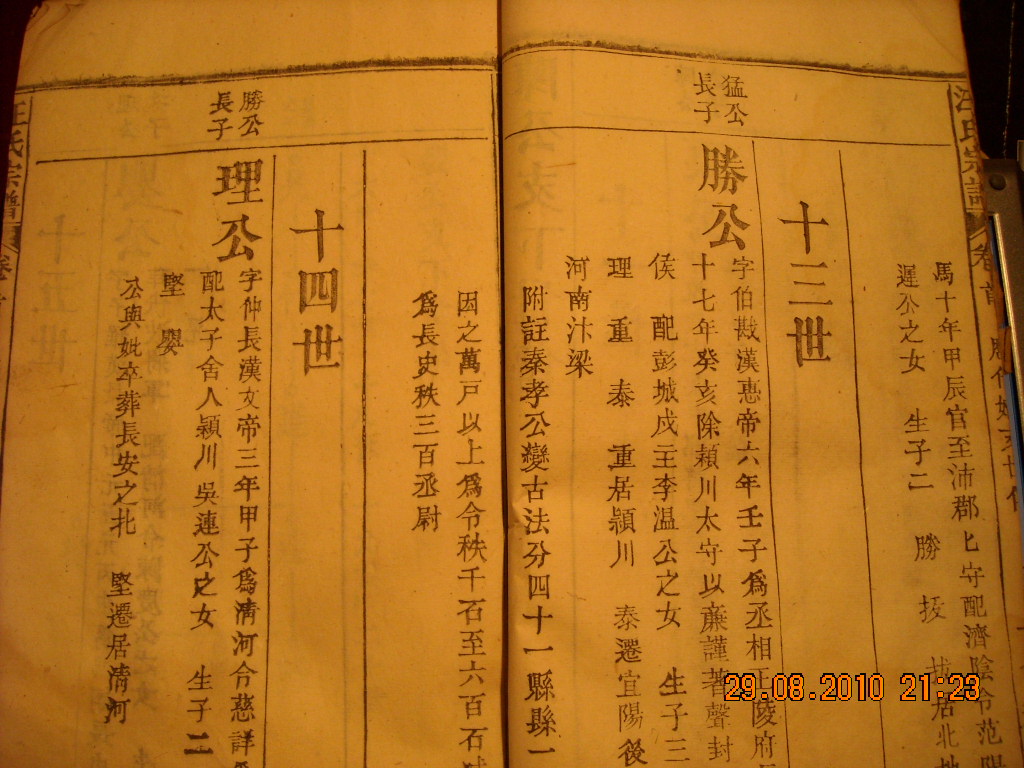 馬十年甲辰官至沛郡太守配濟陰令范陽
遲公之女 生子二 勝 拔 拔居北地
十三世
猛公
長子
勝公
字伯戡漢惠帝六年壬子爲丞相正陵府
十七年癸亥除頴川太守以廉謹著聲封
侯 配彭城戍主李温公之女 生子三
理 重 泰 重居頴川 泰遷宜陽後
河南汴梁
附註秦孝公變古法分四十一縣縣一
因之萬戸以上爲令秩千石至六百石
爲長史秩三百丞尉
十四世
勝公
長子
理公
字仲長漢文帝三年甲子爲清河令慈詳
配太子舍人頴川吳連公之女 生子二
堅 嬰
公與妣卒葬長安之北 堅遷居清河
汪氏宗譜
卷首
汪氏宗譜
29.08.2010 21:23